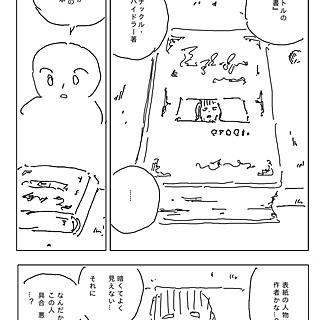 トルの
書』
ナックル・
ハイドラー著
……
の
本
表紙の人物
作者かな…?
暗くてよく
見えない…
それに
なんだか
この人
具合 悪
…?